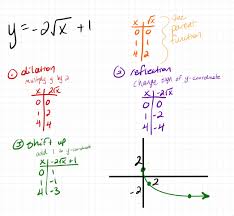 y = -2√x + 1
x | √x
0 | 0
1 | 1
4 | 2
the parent function
① dilation
multiply y by 2
x | 2√x
0 | 0
1 | 2
4 | 4
② reflection
change sign of y-coordinate
x | -2√x
0 | 0
1 | -2
4 | -4
③ shift up
add 1 to y-coordinate
x | -2√x + 1
0 | 1
1 | -1
4 | -3
2
2
-2